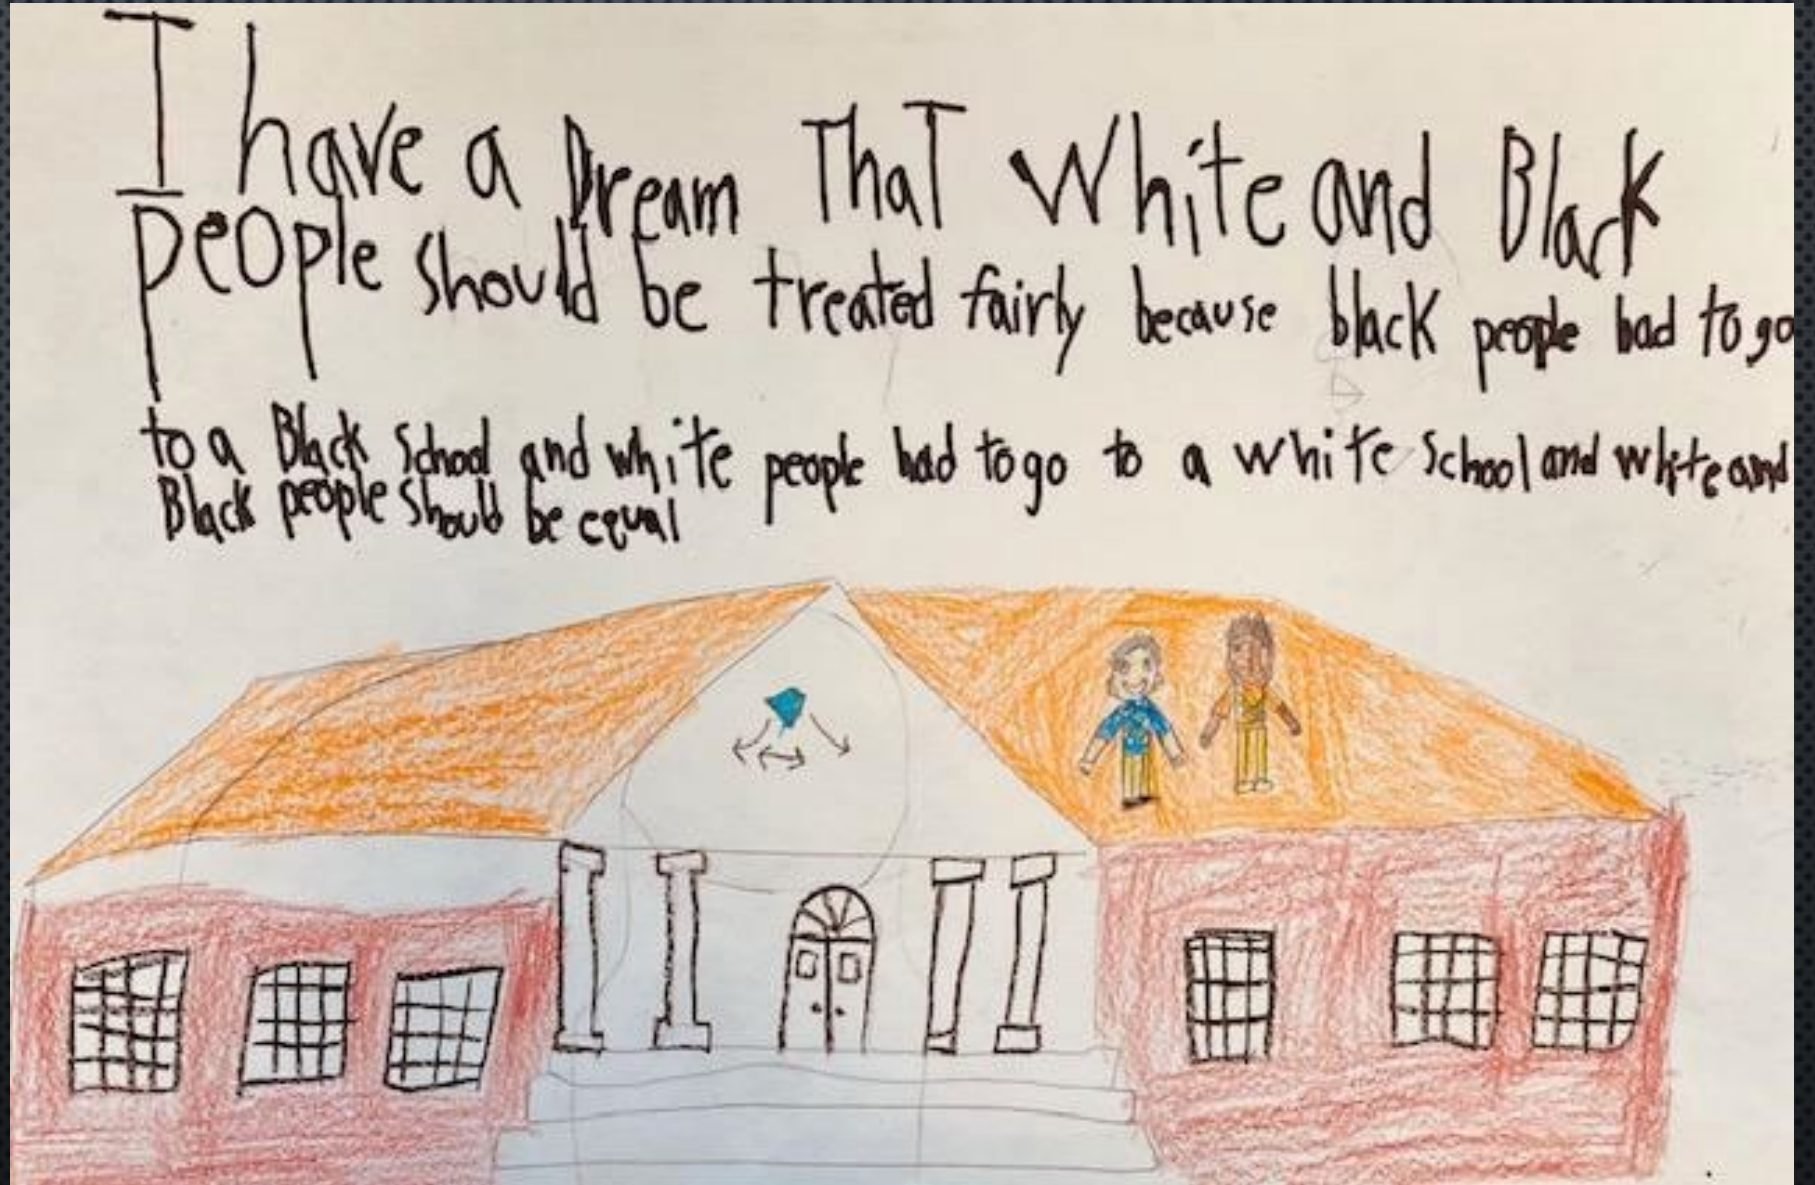 I have a Dream That White and Black
people should be treated fairly because black people had to go
to a Black School and white people had to go to a white School and white and
Black people should be equal